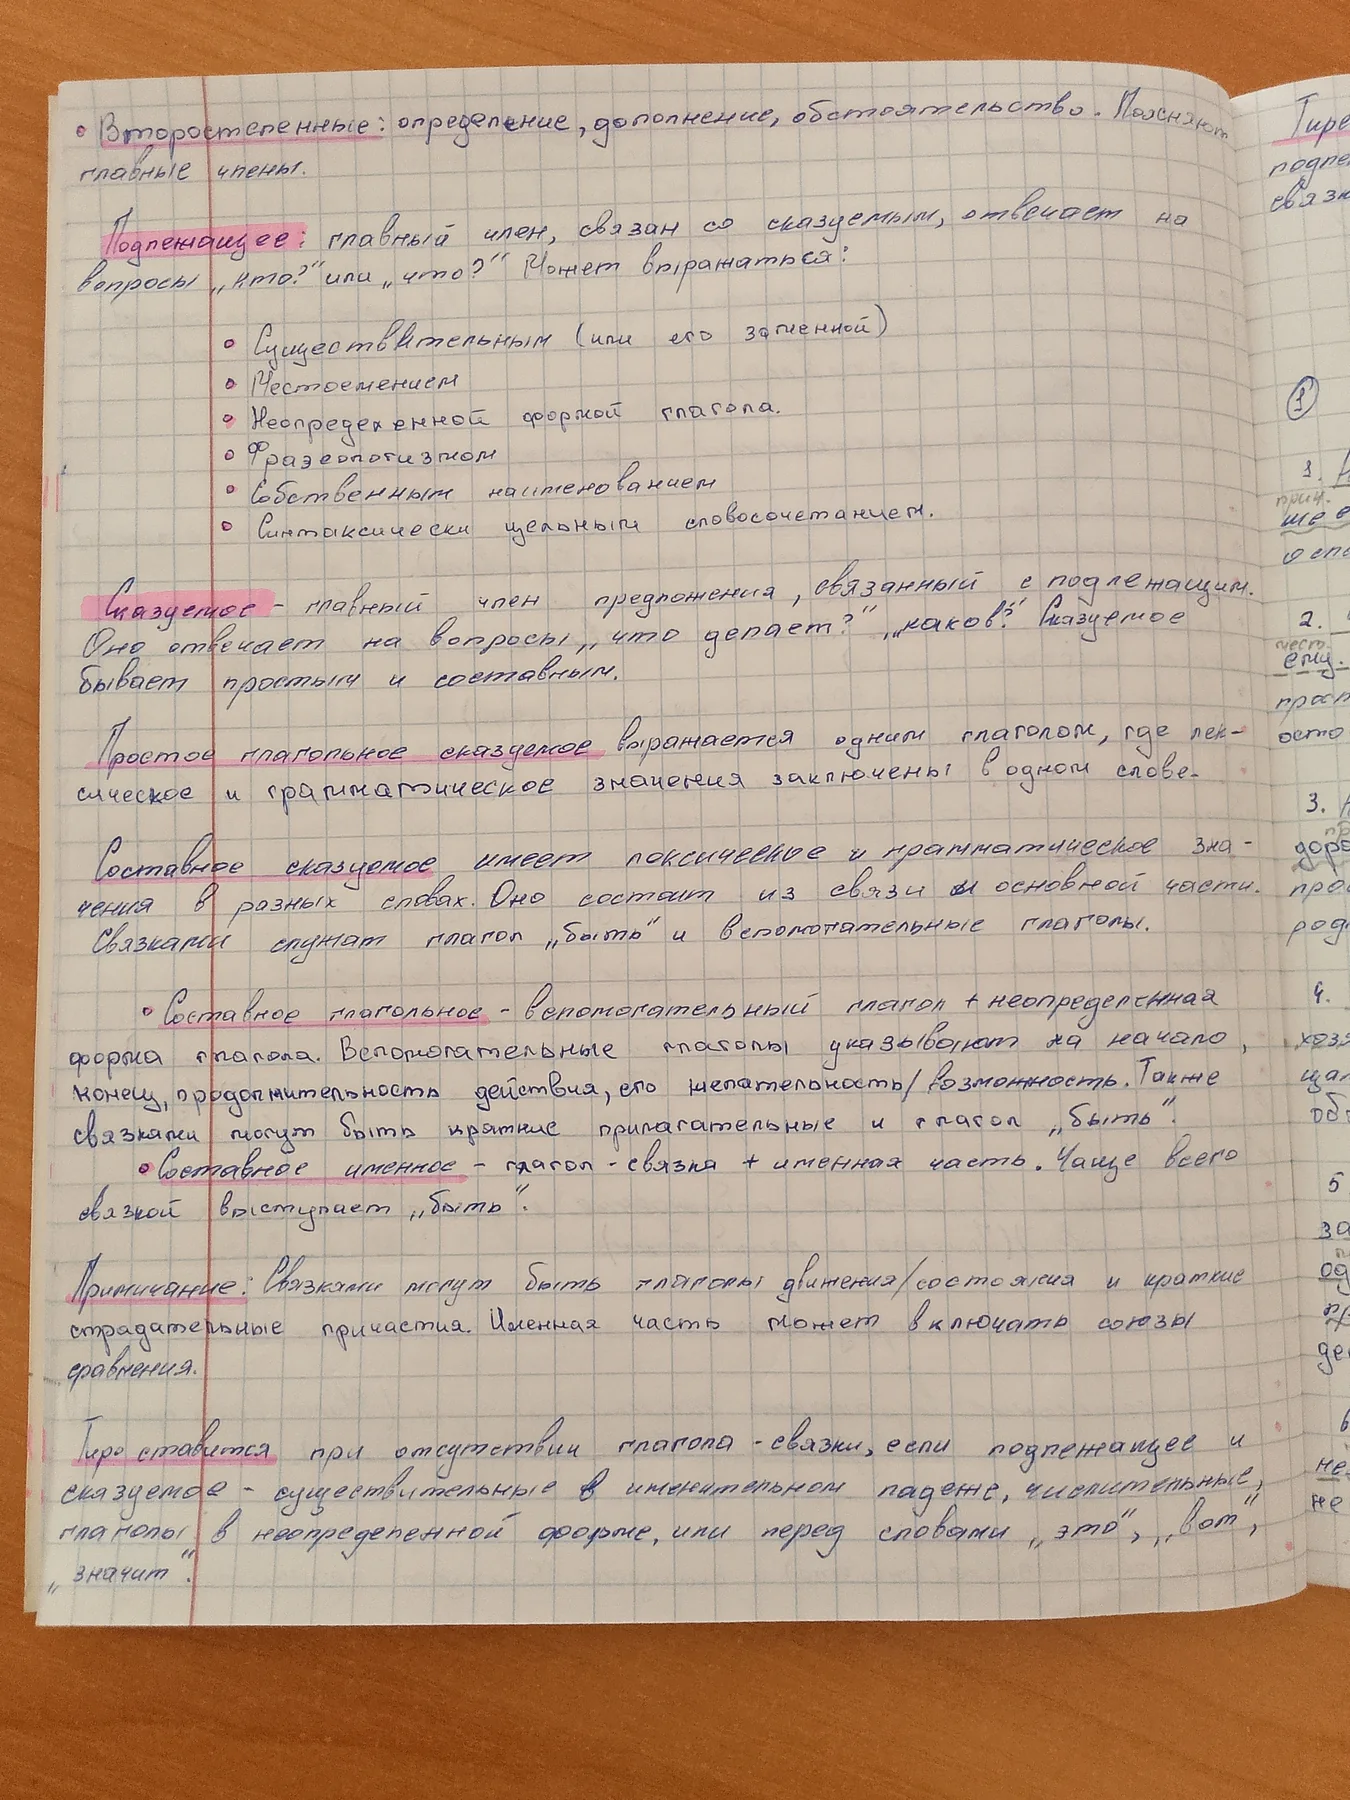 • Второстепенные: определение, дополнение, обстоятельство. Поясняют
главные члены.
Подлежащее: главный член, связан со сказуемым, отвечает на
вопросы „кто?“ или „что?“ Может выражаться:
• Существительным (или его заменной)
• Местоемением
• Неопределенной формой глагола.
• Фразеологизмом
• Собственным наименованием
• Синтаксически цельным словосочетанием.
Сказуемое - главный член предложения, связанный с подлежащим.
Оно отвечает на вопросы „что делает?“ „каков?“. Сказуемое
бывает простым и составным.
Простое глагольное сказуемое выражается одним глаголом, где лек-
сическое и грамматическое значения заключены в одном слове.
Составное сказуемое имеет лексическое и грамматическое зна-
чения в разных словах. Оно состоит из связи и основной части.
Связками служат глагол „быть“ и вспомогательные глаголы.
• Составное глагольное - вспомогательный глагол + неопределенная
форма глагола. Вспомогательные глаголы указывают на начало,
конец, продолжительность действия, его желательность/возможность. Также
связками могут быть краткие прилагательные и глагол „быть“.
• Составное именное - глагол-связка + именная часть. Чаще всего
связкой выступает „быть“.
Примичание: Связками могут быть глаголы движения/состояния и краткие
страдательные причастия. Именная часть может включать союзы
сравнения.
Тире ставится при отсутствии глагола-связки, если подлежащее и
сказуемое - существительные в именительном падеже, числительные,
глаголы в неопределенной форме, или перед словами „это“, „вот“,
„значит“.
Тире
связк
1
1.
прич.
2.
мест.
ему.
3.
4.
5
не